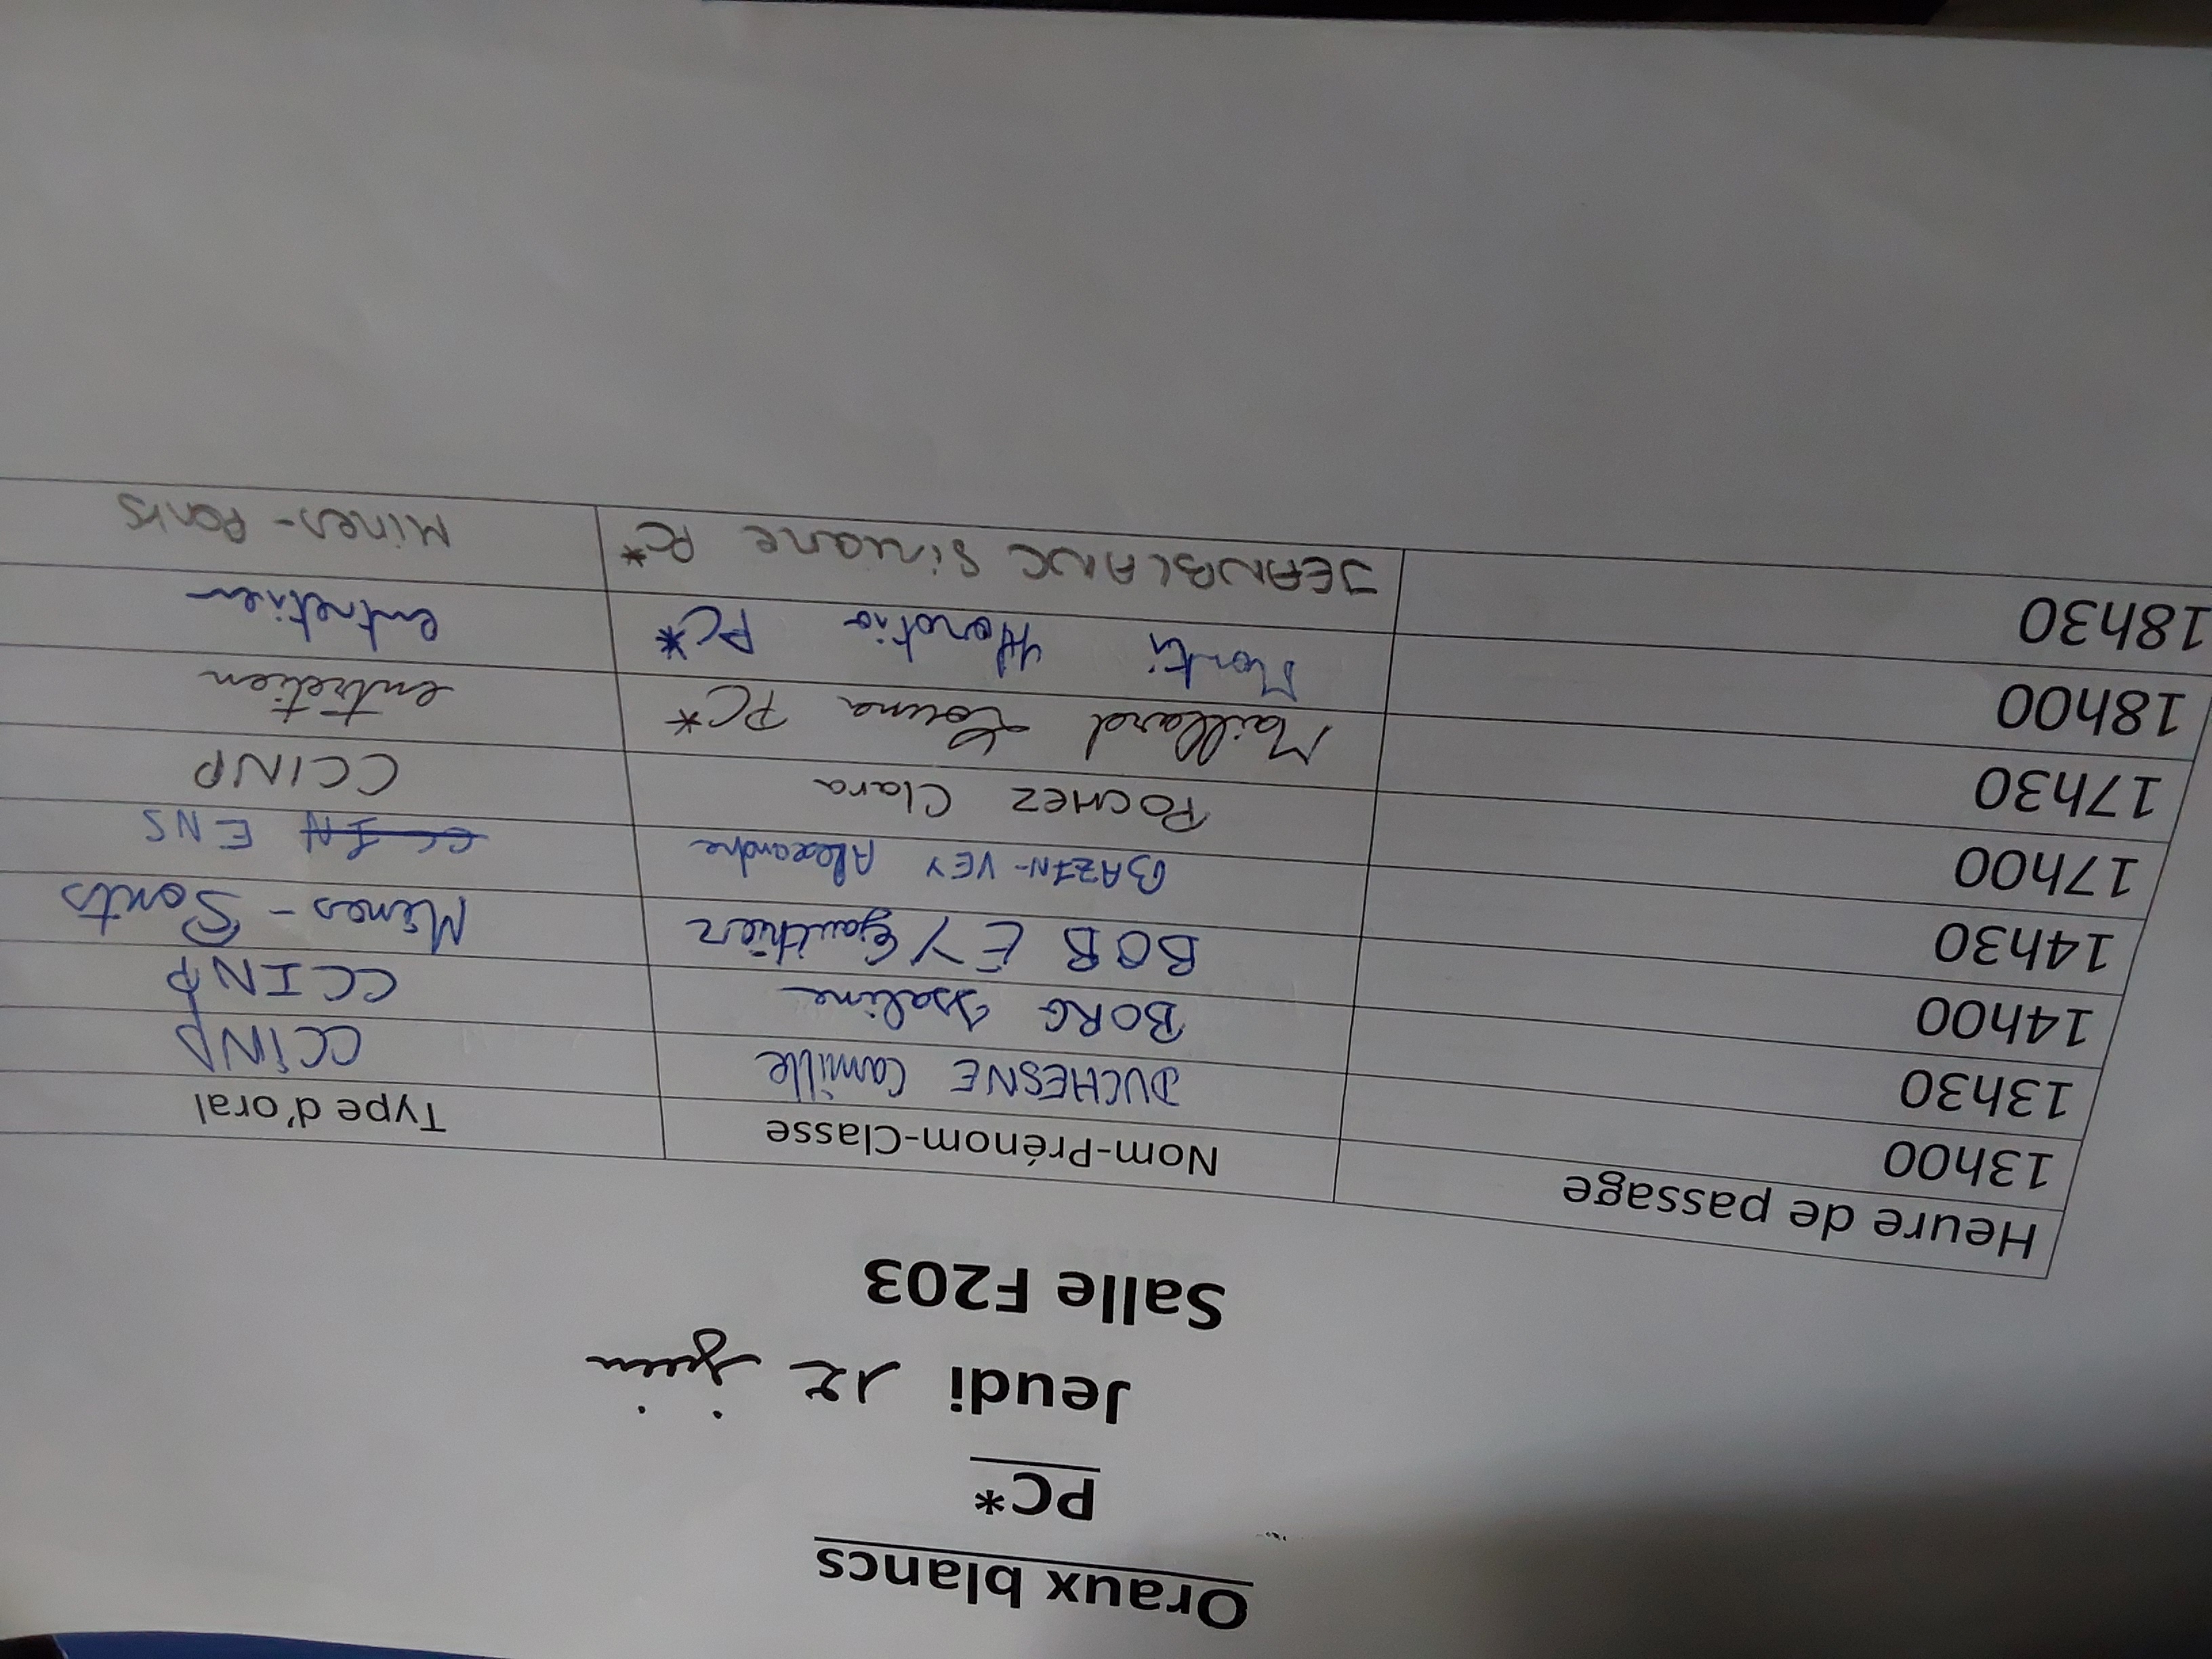 Oraux blancs
PC*
Jeudi 12 juin
Salle F203
Heure de passage Nom-Prénom-Classe Type d'oral
13h00 DUCHESNE Camille CCINP
13h30 BORG Isaline CCINP
14h00 BOBEY Gauthier Mines-Ponts
14h30 BAZIN-VEY Alexandre CCIN ENS
17h00 POCHEZ Clara CCINP
17h30 Maillard Louna PC* entretien
18h00 Monti Horatio PC* entretien
18h30 JEANBLANC Simone PC* Mines-Ponts